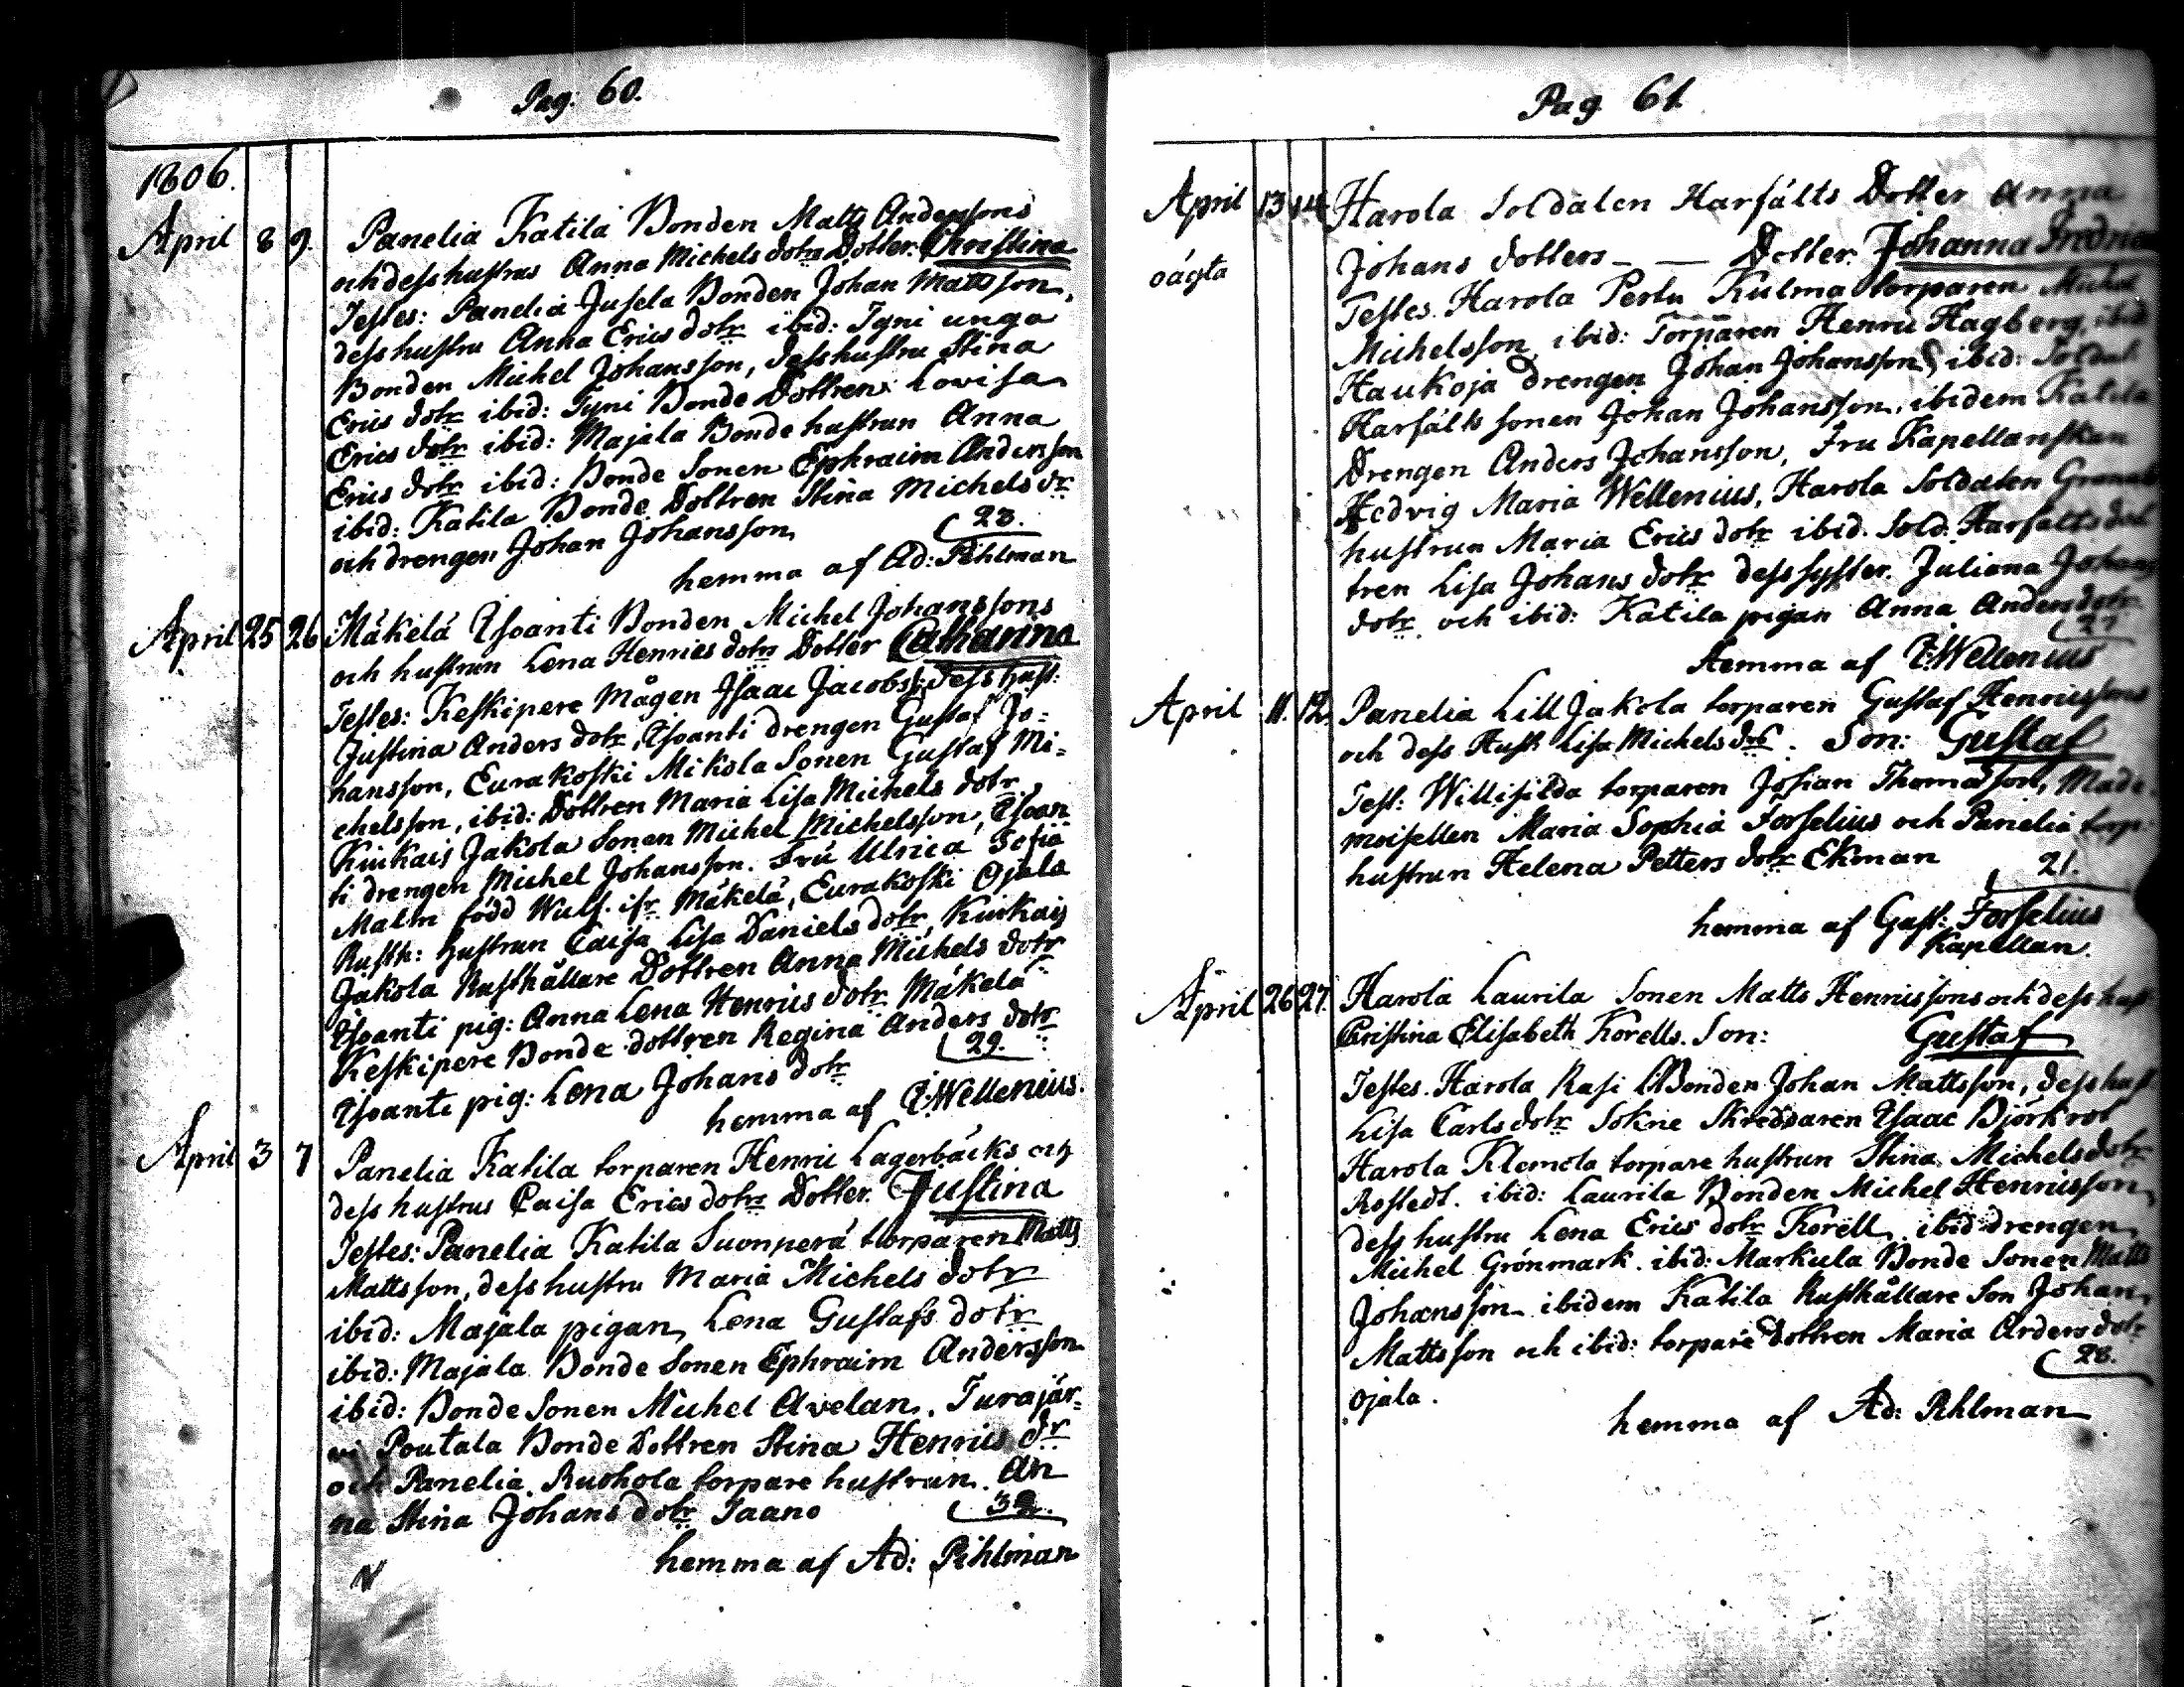 Pag. 60.
1806.
April 8 9. Panelia Katila Bonden Matts Anderssons
och dess hustrus Anna Michels dotrs Dotter. Christina
Testes: Panelia Jusela Bonden Johan Mattsson,
dess hustru Anna Erics dotr ibid: Tyni unga
Bonden Michel Johansson, dess hustru Stina
Erics dotr ibid: Tyni Bonde Dottren Lovisa
Erics dotr ibid: Majala Bonde hustrun Anna
Erics dotr ibid: Bonde Sonen Ephraim Andersson
ibid: Katila Bonde Dottren Stina Michels dr
och drengen Johan Johansson 23.
hemma af Ad: Pihlman
April 25 26 Mäkelä Isoanti Bonden Michel Johanssons
och hustrun Lena Henrics dotrs Dotter Catharina
Testes: Keskipere Mågen Isaac Jacobss: dess hust:
Justina Anders dotr, Isoanti drengen Gustaf Jo=
hansson, Eurakoski Mikola Sonen Gustaf Mi=
chelsson, ibid: Dottren Maria Lisa Michels dotr
Kiukais Jakola Sonen Michel Michelsson, Isoan
ti drengen Michel Johansson. Fru Ulrica Sofia
Malm född Wulf. ifr Mäkelä, Eurakoski Ojala
Rusth: hustrun Caisa Lisa Daniels dotr, Kiukais
Jakola Rusthållare Dottren Anna Michels dotr
Isoanti pig: Anna Lena Henrics dotr Mäkelä
Keskipere Bonde dottren Regina Anders dotr
Isoanti pig: Lena Johans dotr 29.
hemma af Wellenius.
April 3 7 Panelia Katila torparen Henric Lagerbäcks och
dess hustrus Caisa Erics dotrs Dotter. Justina
Testes: Panelia Katila Suonperä torparen Matts
Mattsson, dess hustru Maria Michels dotr
ibid: Majala pigan Lena Gustafs dotr
ibid: Majala Bonde Sonen Ephraim Andersson
ibid: Bonde Sonen Michel Avelan. Turajär=
vi Poutala Bonde Dottren Stina Henrics dr
och Panelia Ruohola torpare hustrun An
na Stina Johans dotr Taano
hemma af Ad: Pihlman
Pag 61
April 13 14 Harola Soldaten Harfälts Dotter Anna
oägta Johans dotters - — Dotter. Johanna
Testes. Harola Perlu Kulma torparen
Michelsson, ibid: Torparen Henric Hagberg, ibid
Haukoja drengen Johan Johansson, ibid: Soldat
Harfälts sonen Johan Johansson, ibidem Katila
Drengen Anders Johansson, Fru Kapellanskan
Hedvig Maria Wellenius, Harola Soldaten
hustrun Maria Erics dotr ibid. Sold: Harfälts dot
tren Lisa Johans dotr dess syster. Juliana Johans
dotr och ibid: Katila pigan Anna Anders dotr
27
Hemma af Wellenius
April 11. 12. Panelia Lill Jakola torparen Gustaf Henricssons
och dess Hust: Lisa Michels dotrs. Son: Gustaf
Test: Willisilda torparen Josian Thomasson, Made=
moisellen Maria Sophia Forselius och Panelia torp:
hustrun Helena Petters dotr Ekman 21.
hemma af Gust: Forselius
Kapellan.
April 26 27. Harola Laurila Sonen Matts Henricssons och dess hust
Christina Elisabeth Korells. Son: Gustaf
Testes. Harola Rasi Bonden Johan Mattsson, dess hust
Lisa Carls dotr Sokne Skreddaren Isaac Björkrot
Harola Klemola torpare hustrun Stina Michels dotr
Rostedt. ibid: Laurila Bonden Michel Henricsson,
dess hustru Lena Erics dotr Korell, ibid drengen
Michel Grönmark. ibid: Markula Bonde Sonen Matts
Johansson ibidem Katila Rusthållare Son Johan
Mattsson och ibid: torpare dottren Maria Anders dotr
Ojala. 28.
hemma af Ad: Pihlman